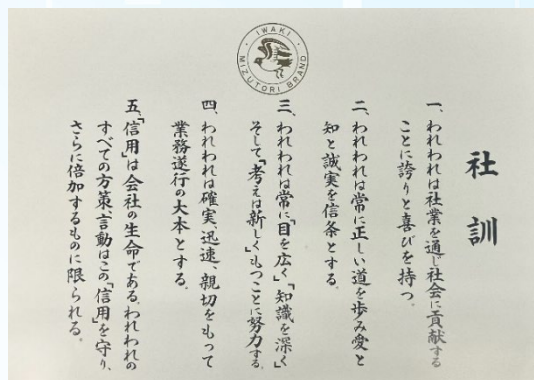 IWAKI
MIZUTORI BRAND
社訓
一、われわれは社業を通じ社会に貢献する
ことに誇りと喜びを持つ。
二、われわれは常に正しい道を歩み愛と
知と誠実を信条とする。
三、われわれは常に「目を広く」「知識を深く」
そして「考えは新しく」もつことに努力する。
四、われわれは確実、迅速、親切をもって
業務遂行の大本とする。
五、「信用」は会社の生命である。われわれの
すべての方策、言動はこの「信用」を守り、
さらに倍加するものに限られる。